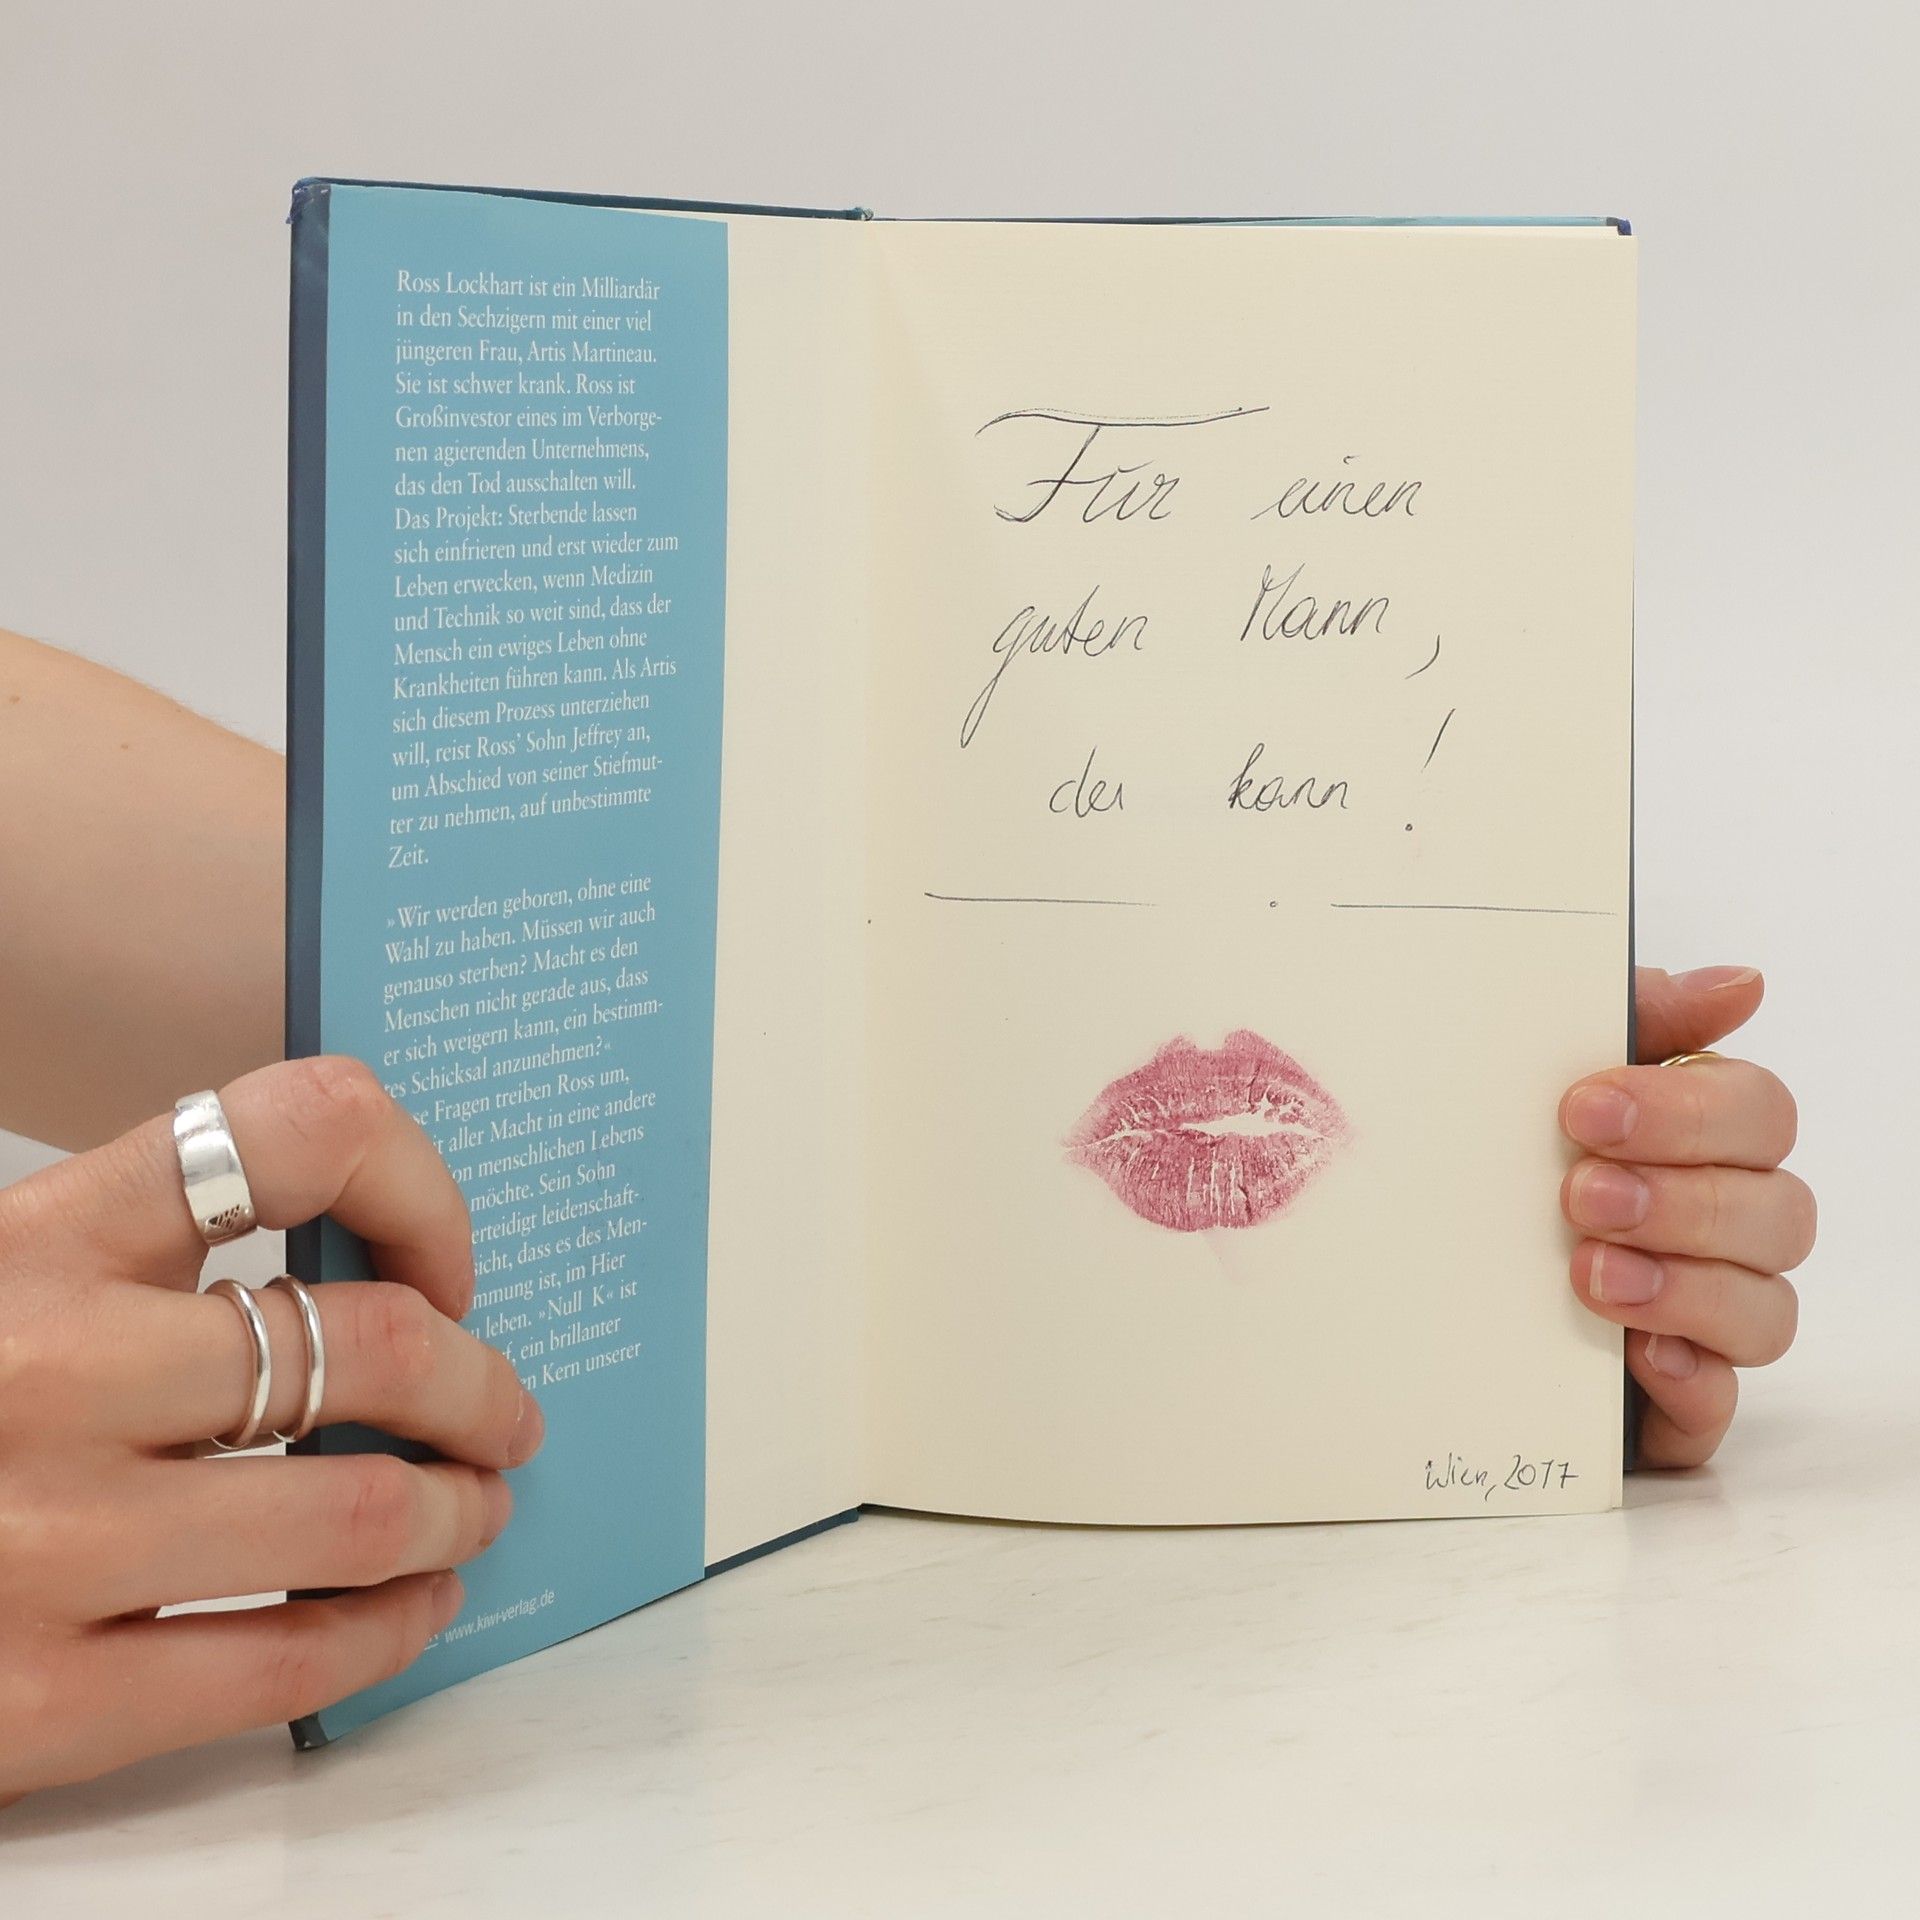 Ross Lockhart ist ein Milliardär
in den Sechzigern mit einer viel
jüngeren Frau, Artis Martineau.
Sie ist schwer krank. Ross ist
Großinvestor eines im Verborge-
nen agierenden Unternehmens,
das den Tod ausschalten will.
Das Projekt: Sterbende lassen
sich einfrieren und erst wieder zum
Leben erwecken, wenn Medizin
und Technik so weit sind, dass der
Mensch ein ewiges Leben ohne
Krankheiten führen kann. Als Artis
sich diesem Prozess unterziehen
will, reist Ross' Sohn Jeffrey an,
um Abschied von seiner Stiefmut-
ter zu nehmen, auf unbestimmte
Zeit.
»Wir werden geboren, ohne eine
Wahl zu haben. Müssen wir auch
genauso sterben? Macht es den
Menschen nicht gerade aus, dass
er sich weigern kann, ein bestimm-
tes Schicksal anzunehmen?«
Fragen treiben Ross um,
aller Macht in eine andere
menschlichen Lebens
möchte. Sein Sohn
leidenschaft-
dass es des Men-
ist, im Hier
leben. »Null K« ist
ein brillanter
Kern unserer
www.kiwi-verlag.de
Für einen
guten Mann,
der kann!
Wien, 2017